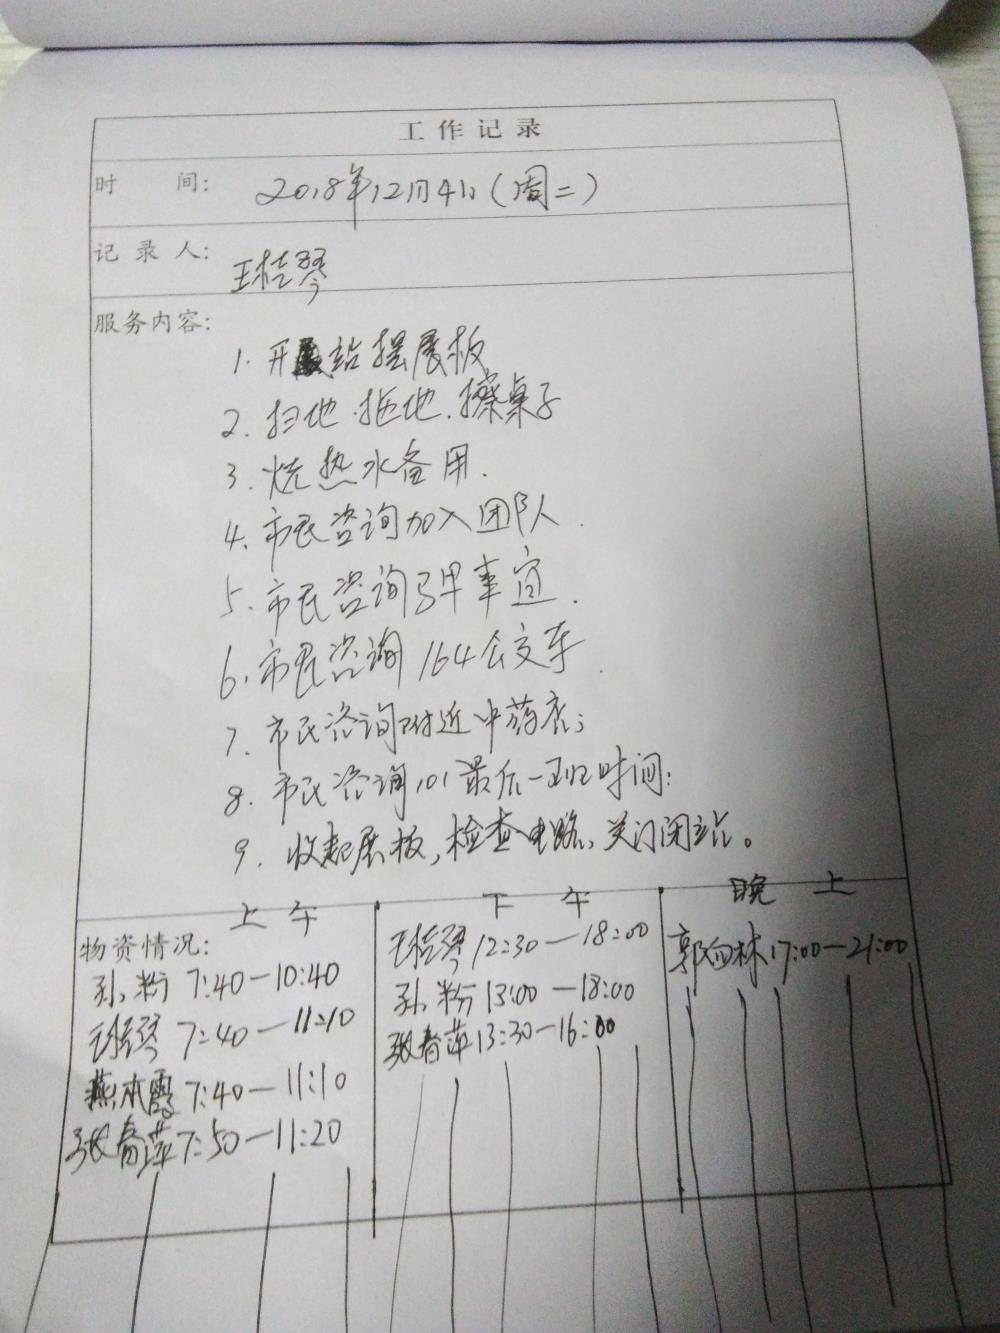 工作记录
时 间: 2018年12月4日(周二)
记录人: 王桂琴
服务内容:
1. 开站摆展板
2. 扫地.拖地.擦桌子
3. 烧热水备用.
4. 市民咨询加入团队.
5. 市民咨询马甲事宜.
6. 市民咨询164公交车.
7. 市民咨询附近中药店;
8. 市民咨询101最后一班时间;
9. 收起展板,检查电路、关门闭站。
上午 下午 晚上
物资情况:
孙粉 7:40—10:40
王桂琴 7:40—11:10
燕本霞 7:40—11:10
张春萍 7:50—11:20
王桂琴 12:30—18:00
孙粉 13:00—18:00
张春萍 13:30—16:00
郭向林 17:00—21:00